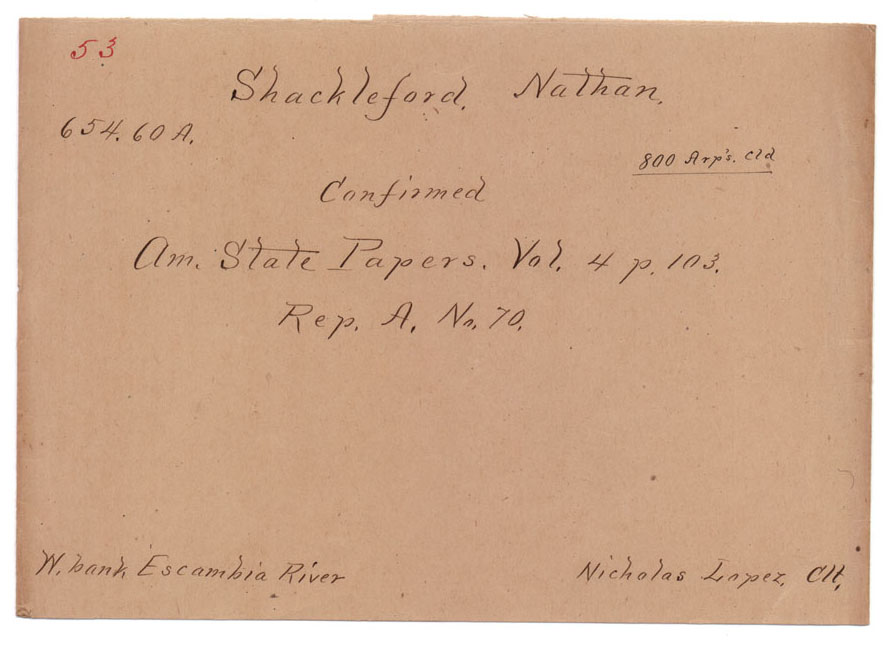 53
Shackleford, Nathan.
654.60 A.
800 Arp's. cld
Confirmed
Am. State Papers. Vol. 4 p. 103.
Rep. A. No. 70.
W. bank Escambia River
Nicholas Lopez, Clt.